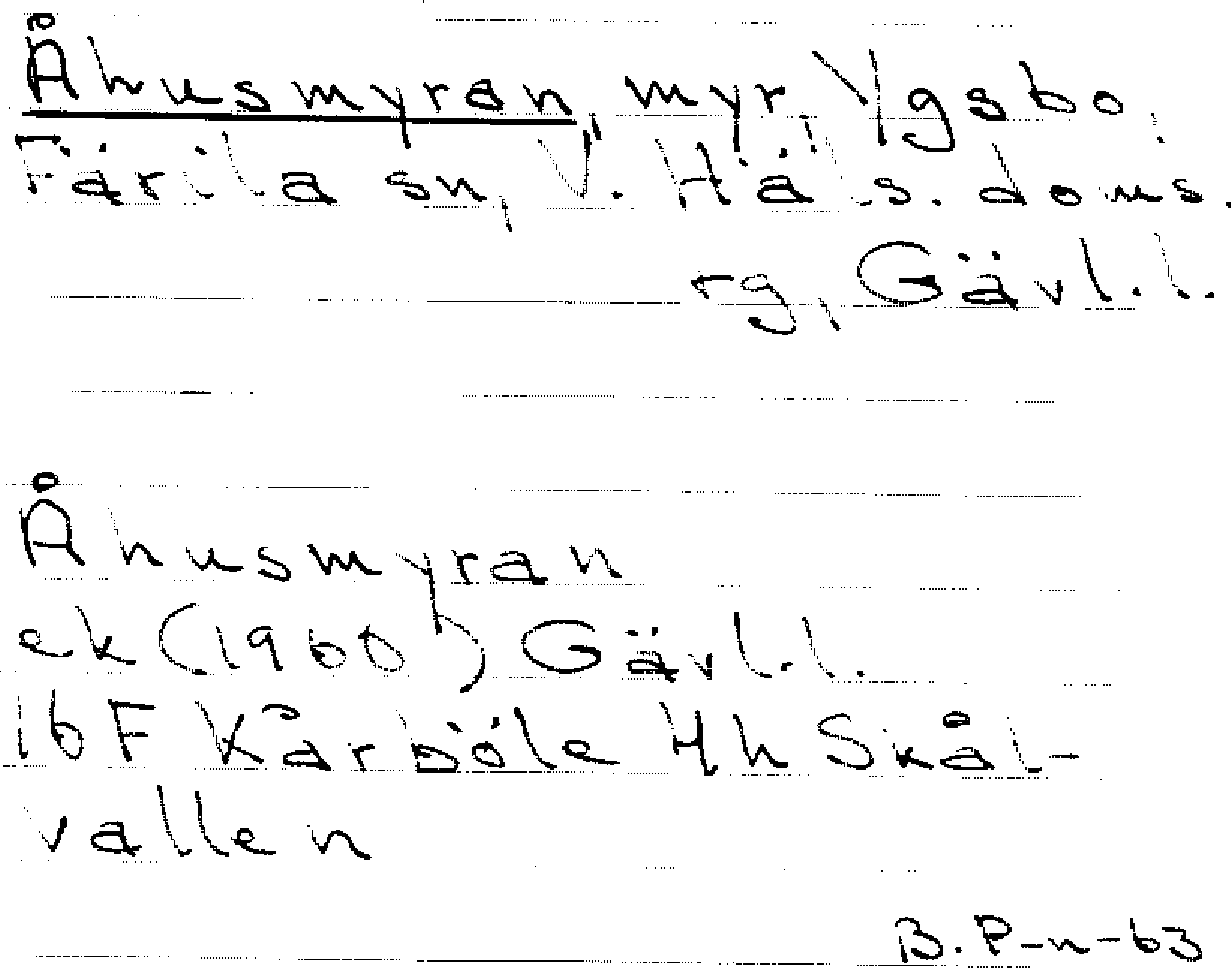 Åhusmyran, myr, Ygsbo,
Färila sn, V. Häls. doms.
rg, Gävl.l.
Åhusmyran
ek (1960) Gävl.l.
16F Kårböle 4h Skål-
vallen
B. P-n-63